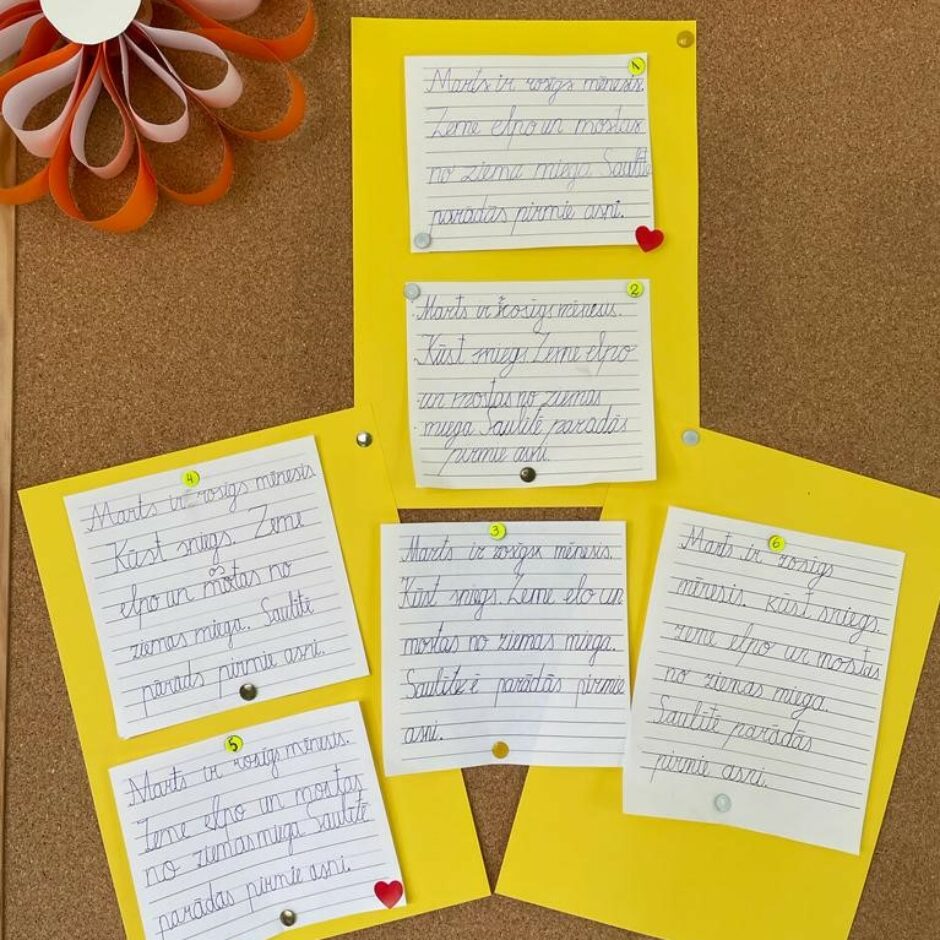 1
Marts ir rosīgs mēnesis.
Zeme elpo un mostas
no ziema miega. Saulītē
parādās pirmie asni.
2
Marts ir rosīgs mēnesis.
Kūst sniegs. Zeme elpo
un mostas no ziemas
miega. Saulītē paradās
pirmie asni.
4
Marts ir rosīgs mēnesis
Kūst sniegs. Zeme
os
elpo un motas no
ziemas miega. Saulītē
pārāds pirmie asni.
3
Marts ir rosīgs mēnesis.
Kūst sniegs. Zeme elo un
mostas no ziemas miega.
Saulītē ē parādās pirmie
asni.
6
Marts ir rosīgs
mēnesis. Kūst sniegs.
Zeme elpo un mostas
no ziemas miega.
Saulītē parādās
pirmie asni.
5
Marts ir rosīgs mēnesis.
Zeme elpo un mostas
no ziemas miega Saulītē
parādās pirmie asni.